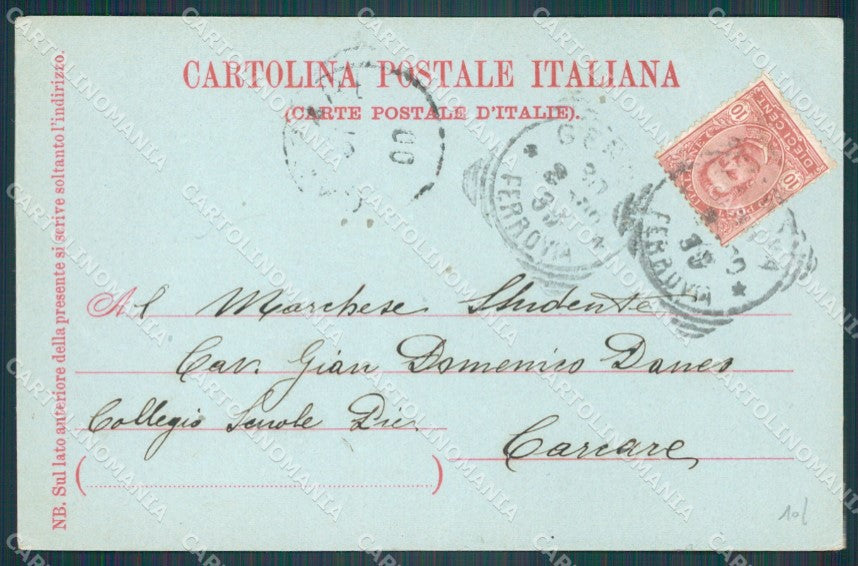 CARTOLINA POSTALE ITALIANA
(CARTE POSTALE D'ITALIE).
NB. Sul lato anteriore della presente si scrive soltanto l'indirizzo.
10 DIECI CENT. 10
FERROVIA
FERROVIA
Al Marchese Studente
Cav. Gian Domenico Daneo
Collegio Scuole Pie
Carcare
CARTOLINOMANIA